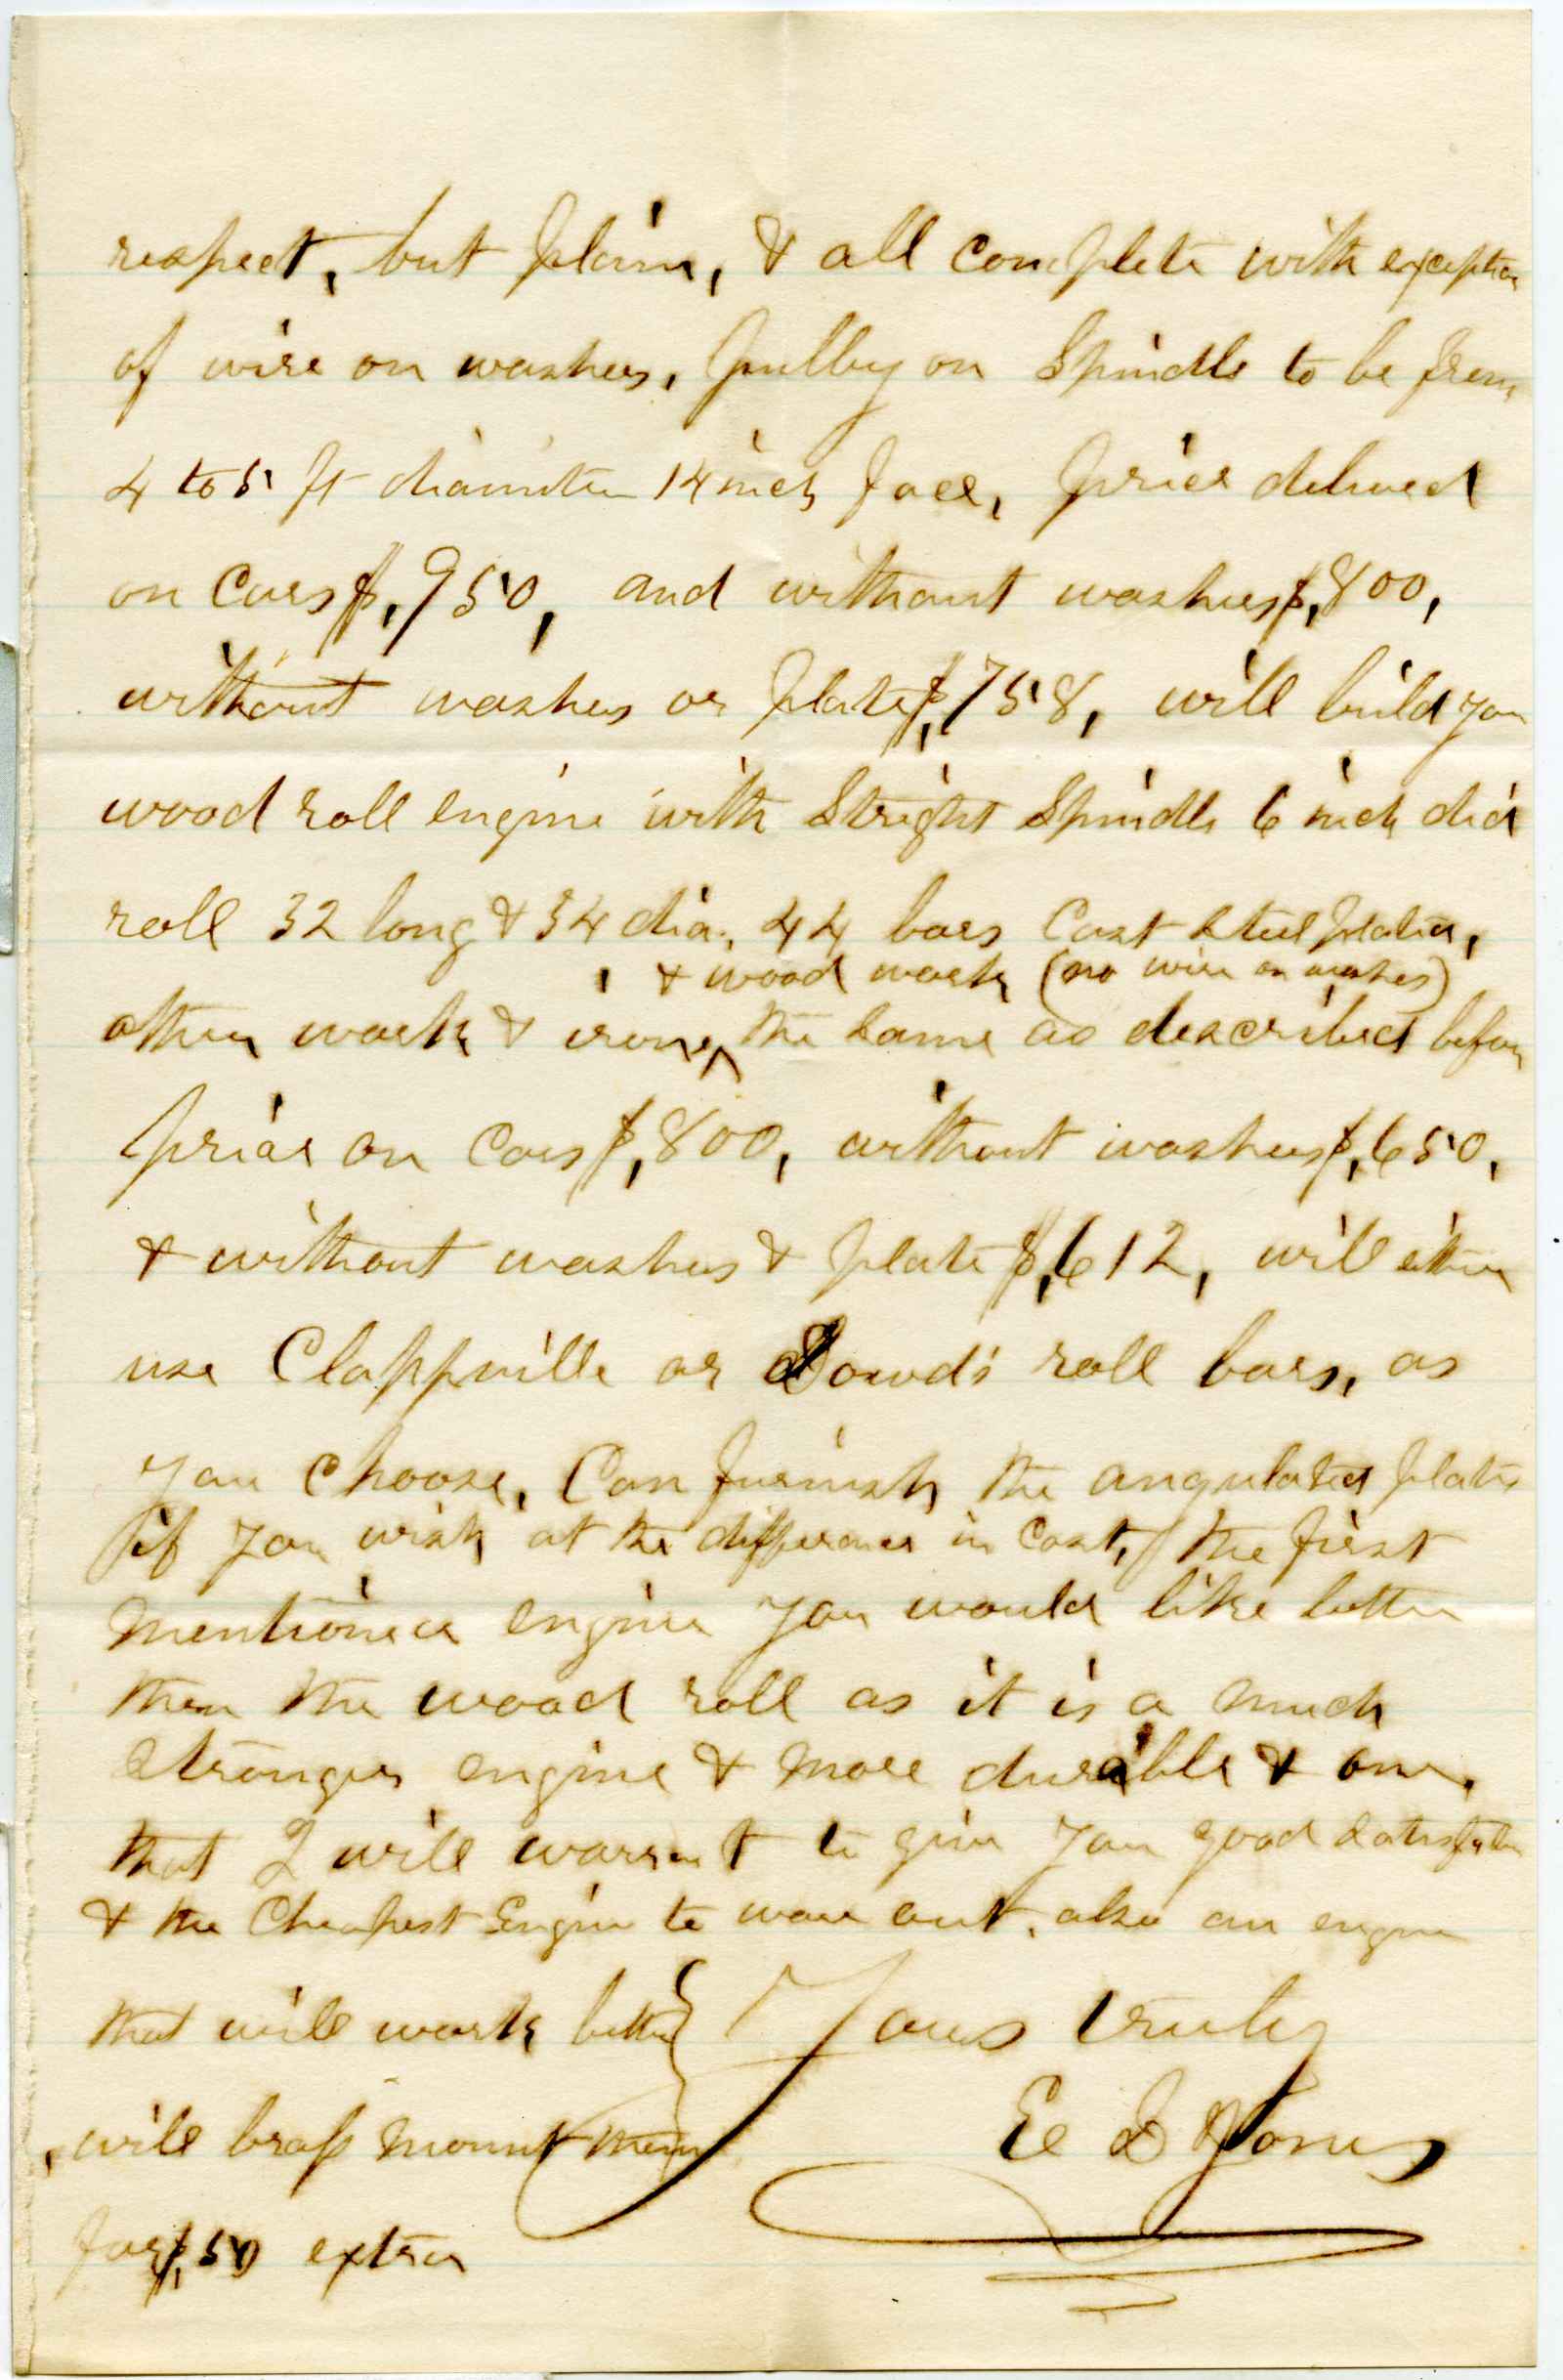 respect, but plain, & all complete with exception
of wire on washers, pulley on Spindle to be from
4 to 5 ft diameter 14 inch face, price delivered
on Cars $,950, and without washers $,800,
without washers or plate $,758, will build you
wood roll engine with Streight Spindle 6 inch dia
roll 32 long & 34 dia, 44 bars Cast Steel plates,
& wood work (no wire on washers)
other work & irons the same as described before
price on Cars $,800, without washers $,650,
& without washers & plate $,612, will either
use Clappville or Dowds roll bars, as
you choose, Can furnish the angulated plates
if you wish at the difference in Cost, the first
mentioned engine you would like better
then the wood roll as it is a much
Stronger engine & more durable & one
that I will warrant to give you good Satisfaction
& the Cheapest Engine to ware out, also an engine
that will work better
Yours truly
E D Jones
will brass mount them
for $,50 extra